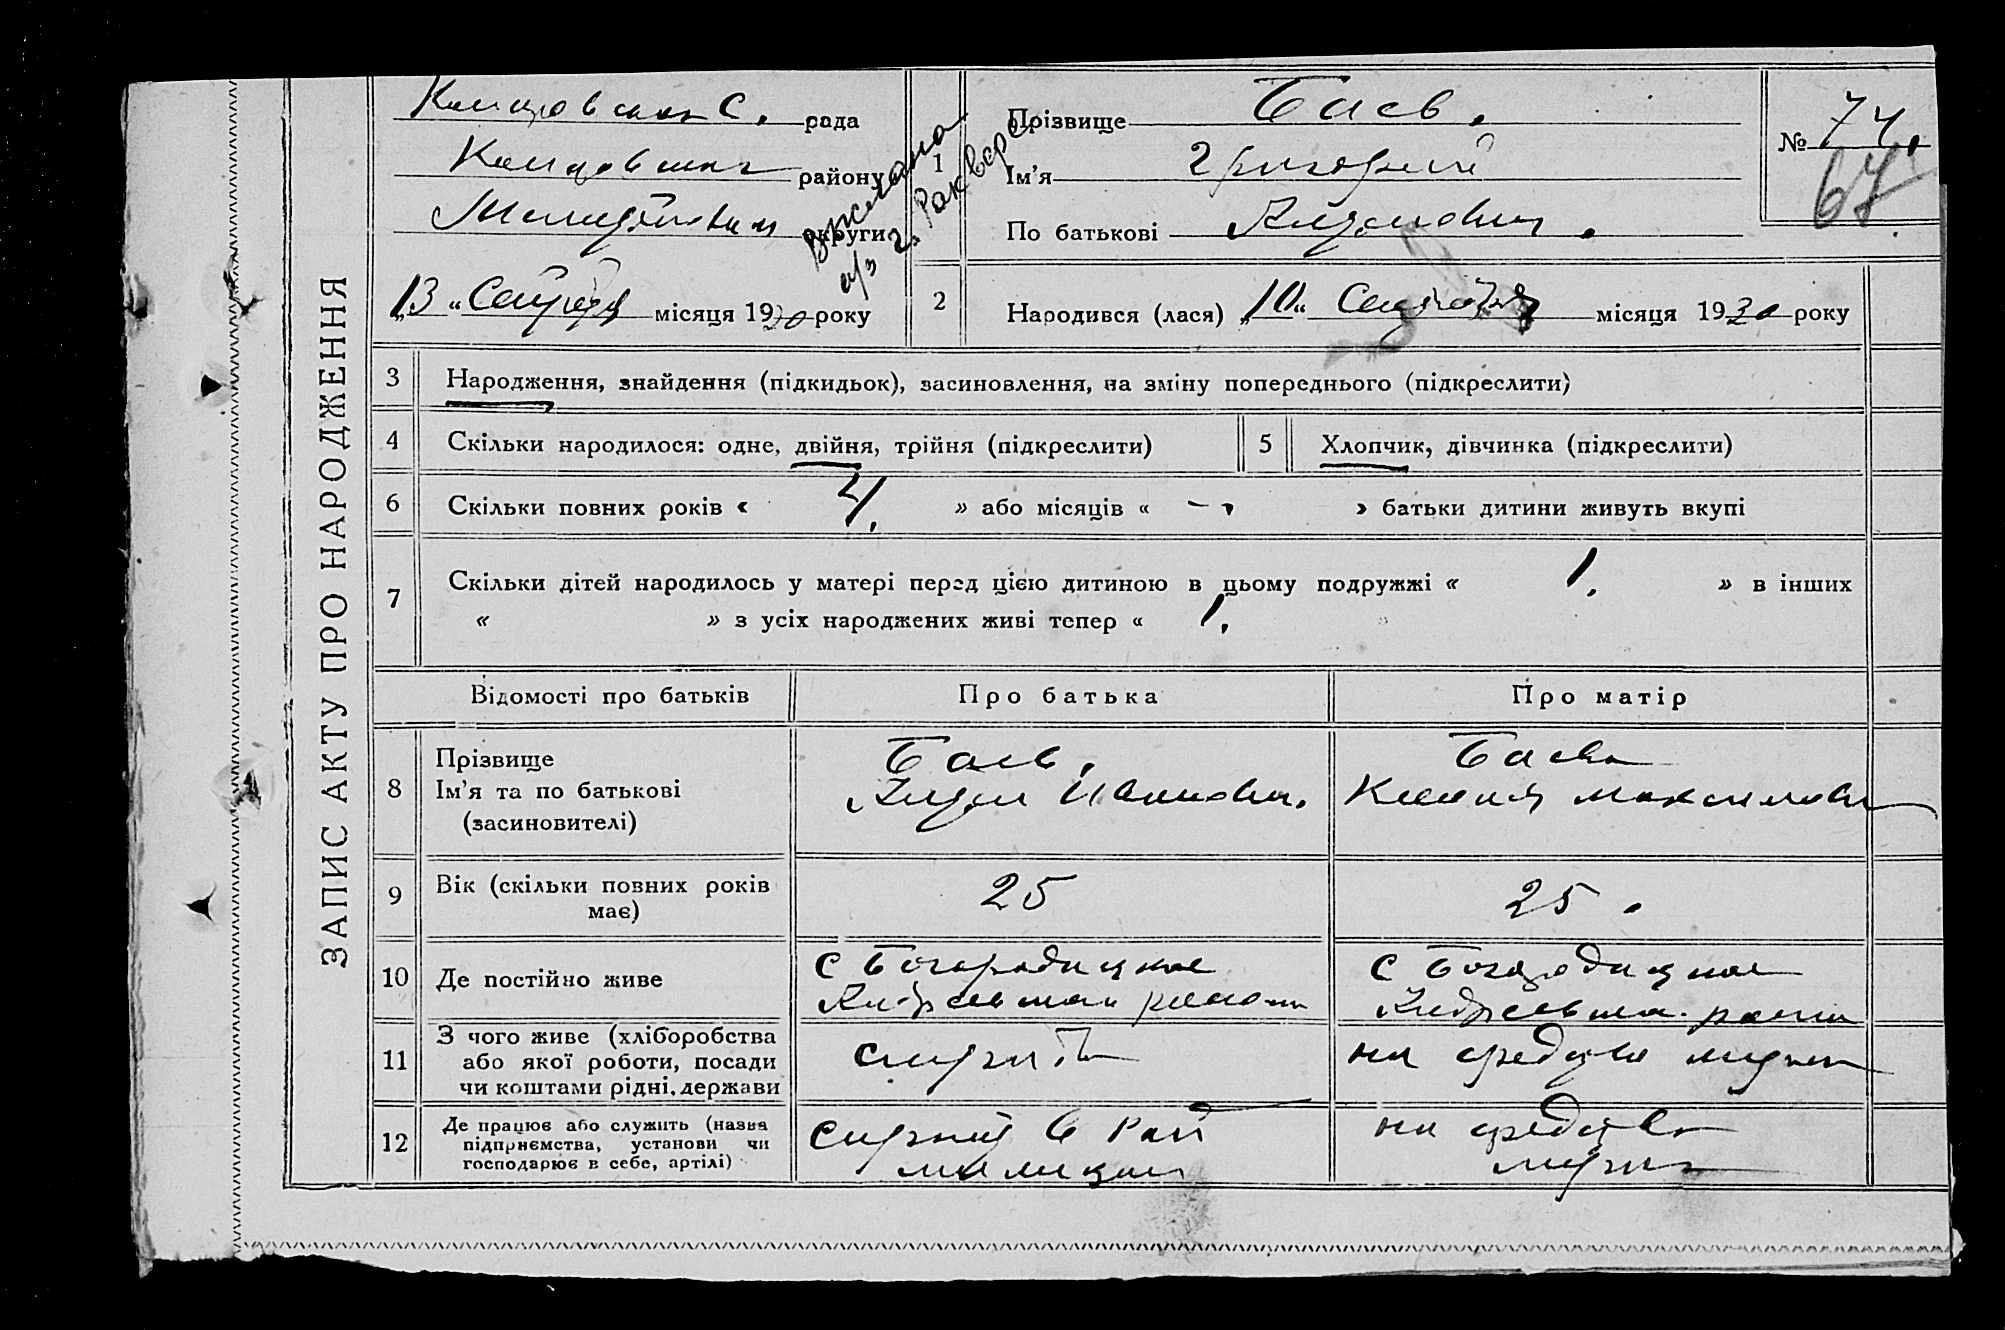 ЗАПИС АКТУ ПРО НАРОДЖЕННЯ
С. рада
району
округи
„13“ місяця 1930 року
1 Прізвище Баев.
Ім'я Григорий
По батькові
№ 74.
67
2 Народився (лася) „10“ місяця 1930 року
3 Народження, знайдення (підкидьок), засиновлення, на зміну попереднього (підкреслити)
4 Скільки народилося: одне, двійня, трійня (підкреслити)
5 Хлопчик, дівчинка (підкреслити)
6 Скільки повних років « 4. » або місяців « - » батьки дитини живуть вкупі
7 Скільки дітей народилось у матері перед цією дитиною в цьому подружжі « 1. » в інших
« » з усіх народжених живі тепер « 1. »
Відомості про батьків Про батька Про матір
8 Прізвище
Ім'я та по батькові
(засиновителі)
Баев.
Иванович.
Баева
Ксения Максимовн
9 Вік (скільки повних років
має)
25
25.
10 Де постійно живе
с Богородицкое
района
с Богородицкое
11 З чого живе (хліборобства
або якої роботи, посади
чи коштами рідні, держави
служит
на средства мужа
12 Де працює або служить (назва
підприємства, установи чи
господарює в себе, артілі)
служит в Рай
милиции
на средства
мужа